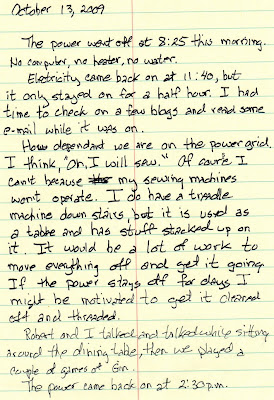 October 13, 2009
The power went off at 8:25 this morning.
No computer, no heater, no water.
Electricity came back on at 11:40, but
it only stayed on for a half hour. I had
time to check on a few blogs and read some
e-mail while it was on.
How dependant we are on the power grid.
I think, "Oh, I will sew." Of course I
can't because my sewing machines
won't operate. I do have a treadle
machine down stairs, but it is used as
a table and has stuff stacked up on
it. It would be a lot of work to
move everything off and get it going.
If the power stays off for days I
might be motivated to get it cleaned
off and threaded.
Robert and I talked and talked while sitting
around the dining table, then we played a
couple of games of Gin.
The power came back on at 2:30 p.m.